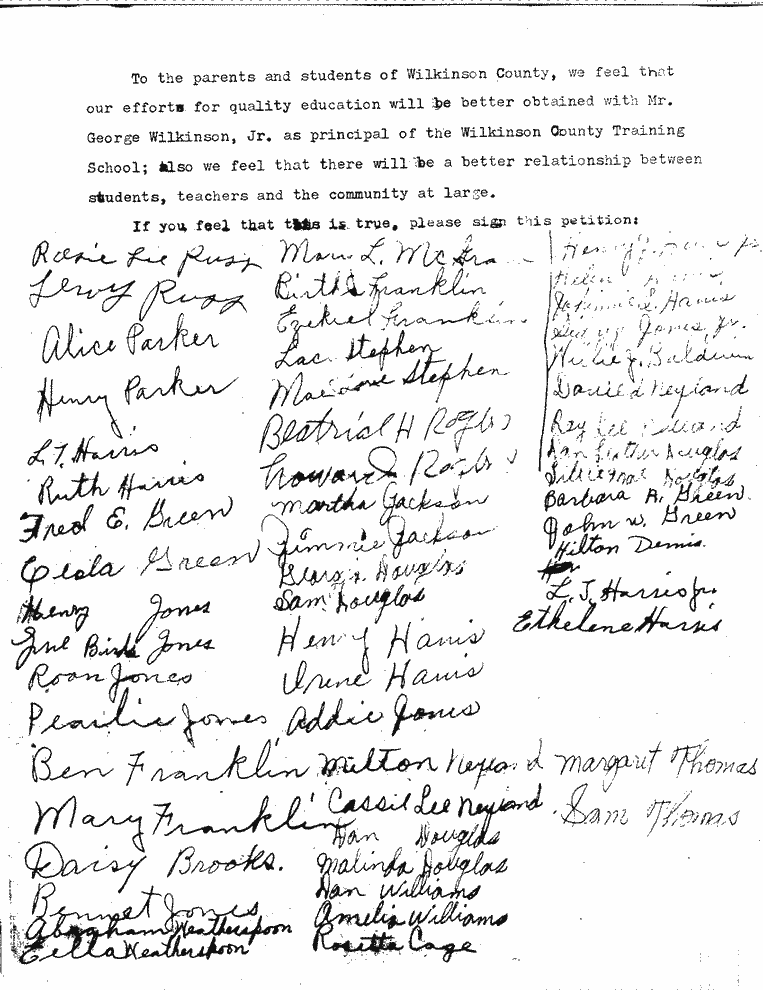 To the parents and students of Wilkinson County, we feel that
our efforts for quality education will be better obtained with Mr.
George Wilkinson, Jr. as principal of the Wilkinson County Training
School; also we feel that there will be a better relationship between
students, teachers and the community at large.
If you feel that this is true, please sign this petition:
Lee Russ
Leroy Russ
Alice Parker
Henry Parker
L.T. Harris
Ruth Harris
Fred E. Green
Ceola Green
Henry Jones
Jones
Roan Jones
Pearlie Jones
Ben Franklin
Mary Franklin
Daisy Brooks.
Bennet Jones
Abraham Weatherspoon
Eella Weatherspoon
L.
Birtha Franklin
Ezekiel Franklin
Lac. Stephen
Stephen
Beatrice H
Howard
Martha Jackson
Jimmie Jackson
Georgia Douglas
Sam Douglas
Henry Harris
Irene Harris
Addie Jones
Milton Neyland
Cassil Lee Neyland
Dan Douglas
Malinda Douglas
Dan Williams
Amelia Williams
Rosetta Cage
Henry Jr.
Helen
Johnnie L. Harris
Jones, Jr.
Willie J. Baldwin
David Neyland
Ray Lee Neyland
Dan Luther Douglas
Lillie Mae Douglas
Barbara A. Green
John W. Green
Hilton Demis.
L.T. Harris Jr.
Ethelene Harris
Margaret Thomas
Sam Thomas